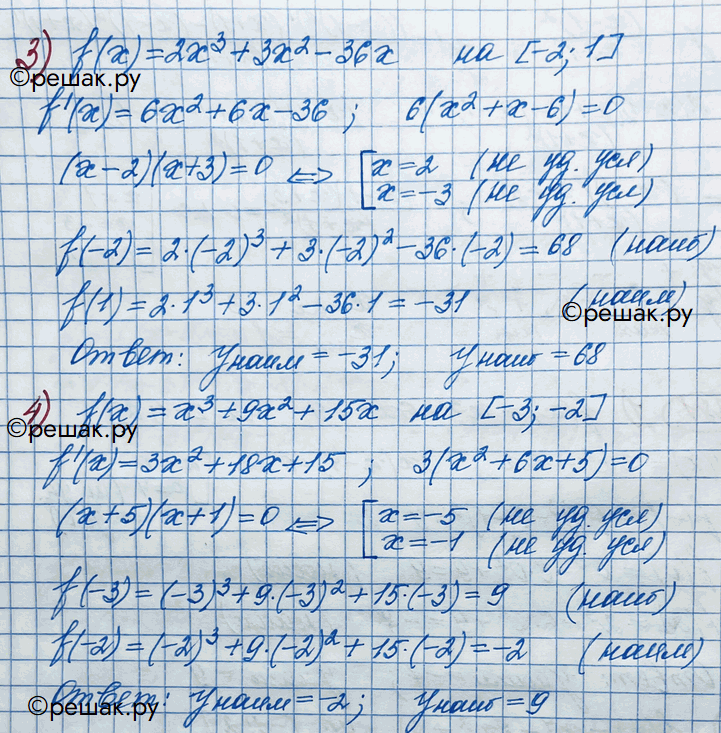 3) f(x) = 2x³ + 3x² - 36x на [-2; 1]
©решак.ру
f'(x) = 6x² + 6x - 36 ; 6(x² + x - 6) = 0
(x - 2)(x + 3) = 0 <=> [ x = 2 (не уд. усл)
x = -3 (не уд. усл)
f(-2) = 2·(-2)³ + 3·(-2)² - 36·(-2) = 68 (наиб)
f(1) = 2·1³ + 3·1² - 36·1 = -31 (наим)
©решак.ру
Ответ: Yнаим = -31; Yнаиб = 68
4) f(x) = x³ + 9x² + 15x на [-3; -2]
©решак.ру
f'(x) = 3x² + 18x + 15 ; 3(x² + 6x + 5) = 0
(x + 5)(x + 1) = 0 <=> [ x = -5 (не уд. усл)
x = -1 (не уд. усл)
f(-3) = (-3)³ + 9·(-3)² + 15·(-3) = 9 (наиб)
f(-2) = (-2)³ + 9·(-2)² + 15·(-2) = -2 (наим)
Ответ: Yнаим = -2; Yнаиб = 9
©решак.ру